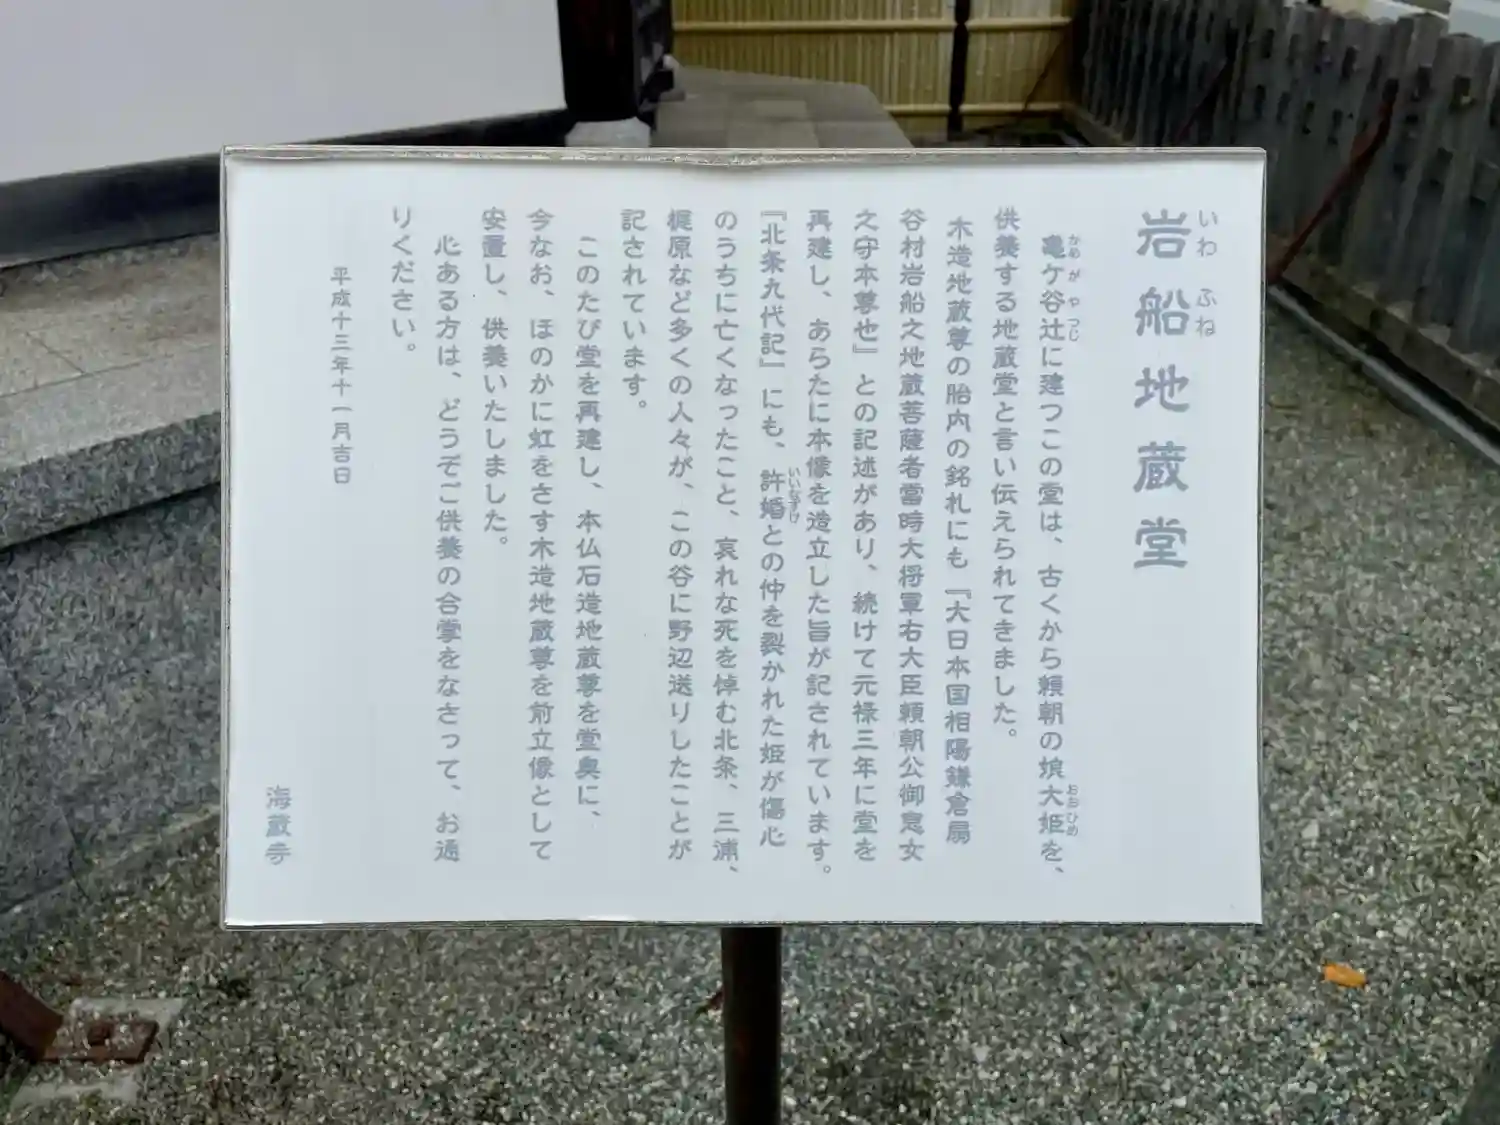 岩船地蔵堂
いわ ふね
亀ケ谷辻に建つこの堂は、古くから頼朝の娘大姫を、
かめ が やつじ
おおひめ
供養する地蔵堂と言い伝えられてきました。
木造地蔵尊の胎内の銘札にも『大日本国相陽鎌倉扇
谷村岩船之地蔵菩薩者當時大将軍右大臣頼朝公御息女
之守本尊也』との記述があり、続けて元禄三年に堂を
再建し、あらたに本像を造立した旨が記されています。
『北条九代記』にも、許婚との仲を裂かれた姫が傷心
いいなずけ
のうちに亡くなったこと、哀れな死を悼む北条、三浦、
梶原など多くの人々が、この谷に野辺送りしたことが
記されています。
このたび堂を再建し、本仏石造地蔵尊を堂奥に、
今なお、ほのかに虹をさす木造地蔵尊を前立像として
安置し、供養いたしました。
心ある方は、どうぞご供養の合掌をなさって、お通
りください。
平成十三年十一月吉日
海蔵寺